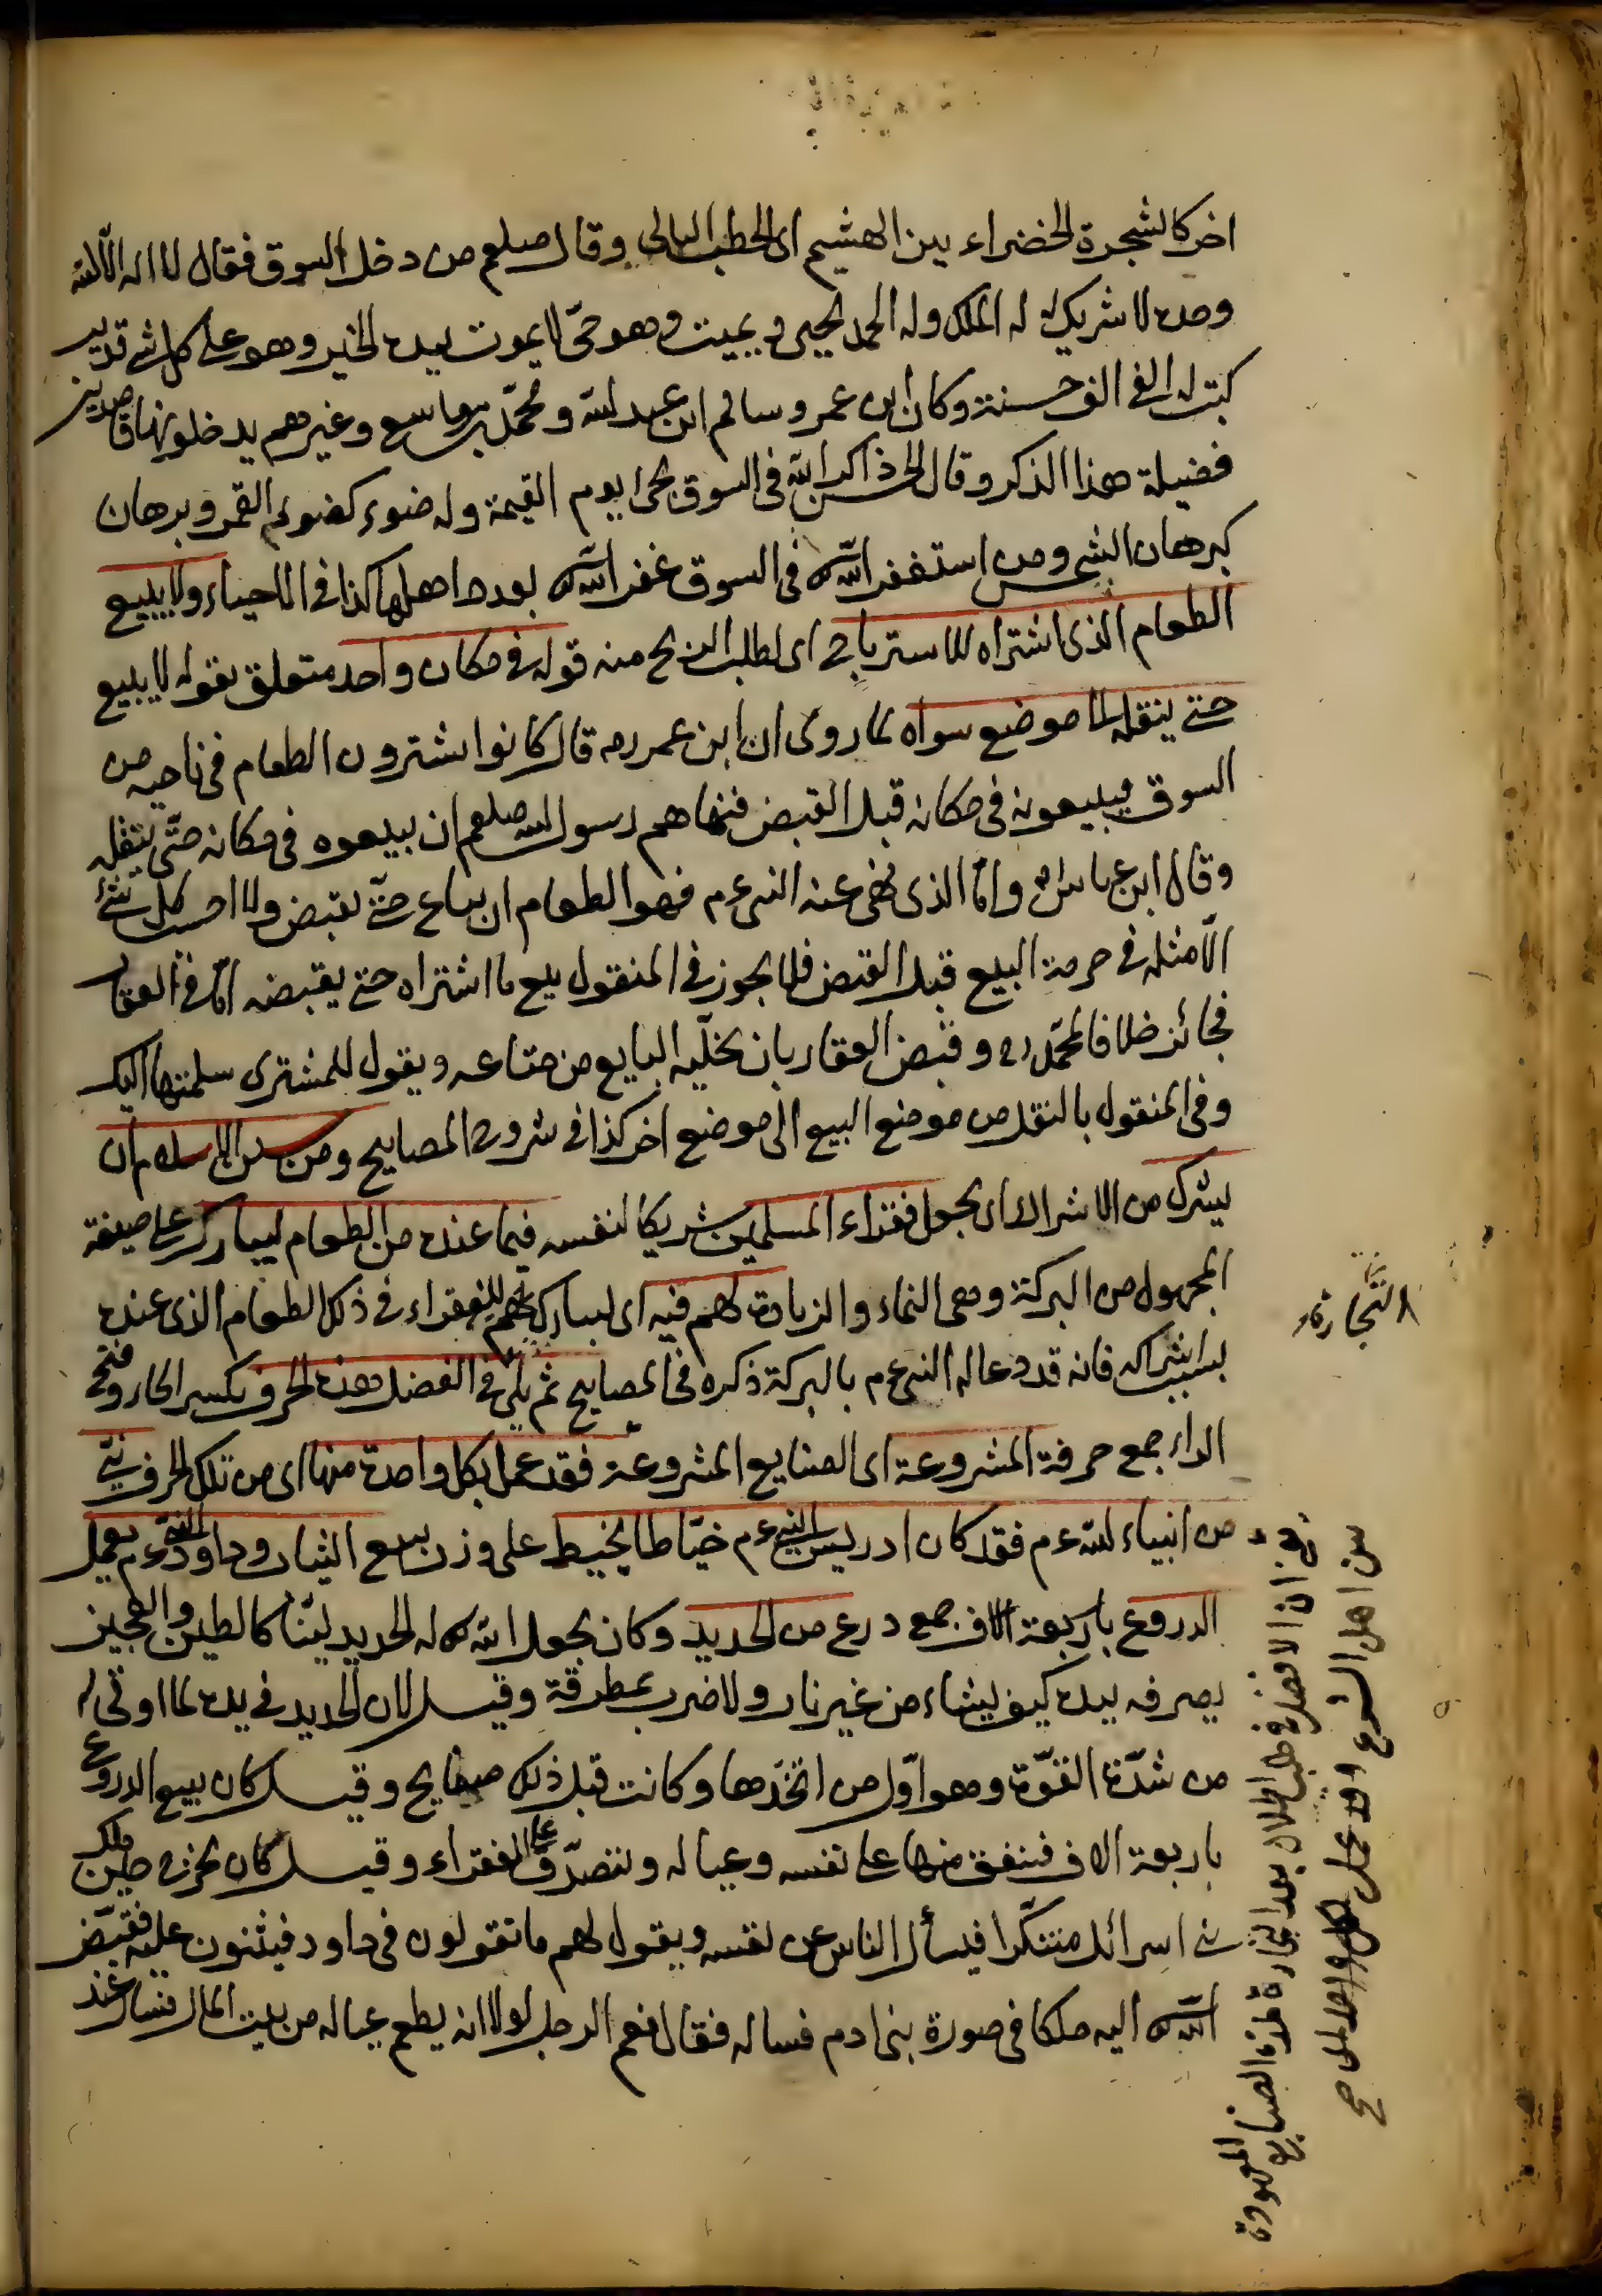 اخر كالشجرة الخضراء بين الهشيم اى الحطب البالى وقال صلعم من دخل السوق فقال لا اله الا الله
وحده لا شريك له له الملك وله الحمد يحيى ويميت وهو حىّ لا يموت بيده الخير وهو على كل شئ قدير
كتب له الف الف حسنة وكان ابن عمر وسالم ابن عبد الله ومحمّد بن واسع وغيرهم يدخلونها قاصدين
فضيلة هذا الذكر وقال الحسن ذاكر الله فى السوق يجئ يوم القيمة وله ضوء كضوء القمر وبرهان
كبرهان الشمس ومن استغفر الله فى السوق غفر الله له بعدد اهلها كذا فى الاحياء ولا يبيع
الطعام الذى اشتراه للاسترباح اى لطلب الربح منه قوله فى مكان واحد متعلق بقوله لا يبيع
حتى ينقله الى موضع سواه لما روى ان ابن عمر رضه قال كانوا يشترون الطعام فى ناحيه من
السوق فيبيعونه فى مكانه قبل القبض فنهاهم رسول الله صلعم ان يبيعوه فى مكانه حتّى ينقله
وقال ابن عباس رض وامّا الذى نهى عنه النبى عم فهو الطعام ان يباع حتّى يقبض ولا احسب كل شئ
الّا مثله فى حرمة البيع قبل القبض فلا يجوز فى المنقول بيع ما اشتراه حتى يقبضه امّا فى العقار
فجائز خلافا لمحمّد رح وقبض العقار بان يخلّيه البايع من متاعه ويقول للمشترى سلمتها اليك
وفى المنقول بالنقل من موضع البيع الى موضع اخر كذا فى شروح المصابيح ومن سنن الاسلام ان
يشرك من الاشراك اى يجعل فقراء المسلمين شريكا لنفسه فيما عنده من الطعام ليبارك على صيغة
المجهول من البركة وهى النماء والزيادة لهم فيه اى ليبارك لهم للفقراء فى ذلك الطعام الذى عنده
بسبب اشراكه فانه قد دعا له النبى عم بالبركة ذكره فى المصابيح ثم يلى فى الفضل هذه الحرف بكسر الحاء وفتح
الراء جمع حرفة المشروعة اى الصنايع المشروعة فقد عمل بكل واحدة منها اى من تلك الحرف نبىّ
من انبياء الله عم فقد كان ادريس النبى عم خيّاطا يخيط على وزن يبيع الثياب وداود النبى عم يعمل
الدروع باربعة الاف جمع درع من الحديد وكان يجعل الله له الحديد ليّنا كالطين والعجين
يصرفه بيده كيف يشاء من غير نار ولا ضرب بمطرقة وقيل لان الحديد فى يده لما اوتى له
من شدّة القوّة وهو اوّل من اتخذها وكانت قبل ذلك صفايح وقيل كان يبيع الدروع
باربعة الاف فينفق منها على نفسه وعياله ويتصدّق على الفقراء وقيل كان يخرج حين ملك
بنى اسرائل متنكّرا فيسأل الناس عن نفسه ويقول لهم ما تقولون فى داود فيثنون عليه فقيّض
الله اليه ملكا فى صورة بنى ادم فساله فقال نعم الرجل لولا انه يطعم عياله من بيت المال فسال عند
التجارة
ان الافضل فى طلب الحلال بعد التجارة هذه الصنايع المعهودة
من اهل الشرع وقد عمل لكل واحد صح